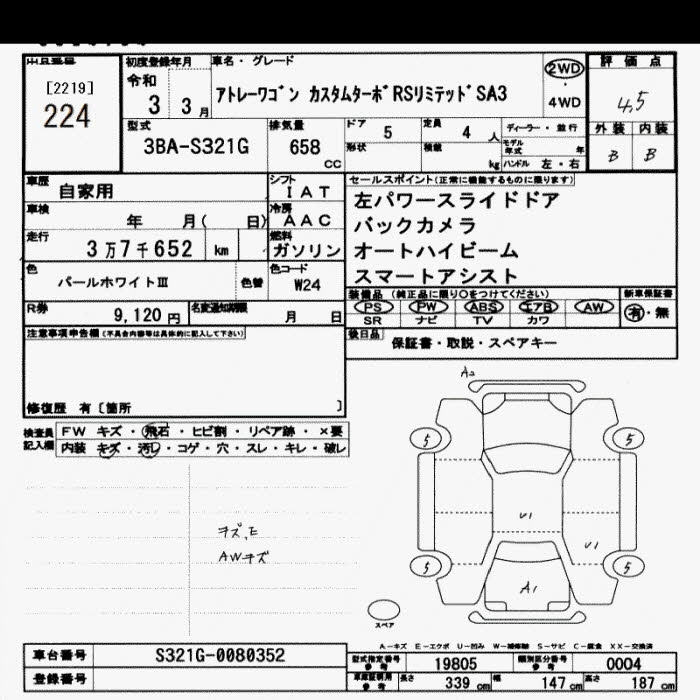 出品番号
[2219]
224
初度登録年月
令和
3 3月
車名・グレード
アトレーワゴン カスタムターボRSリミテッドSA3
2WD
・
4WD
評価点
4.5
外装 内装
B B
型式
3BA-S321G
排気量
658
CC
ドア 5
定員 4 人
形状
積載 kg
ディーラー・並行
モデル年式 年
ハンドル 左・右
車歴
自家用
シフト
IAT
車検
年 月( 日)
冷房
AAC
走行
3万7千652 km
燃料
ガソリン
色
パールホワイトⅢ
色替
色コード
W24
R券
9,120円
名変通知期限
月 日
セールスポイント(正常に機能するものに限ります)
左パワースライドドア
バックカメラ
オートハイビーム
スマートアシスト
装備品(純正品に限り○をつけてください)
PS PW ABS エアB AW
SR ナビ TV カワ
新車保証書
有・無
後日品
保証書・取説・スペアキー
注意事項申告欄(不具合内容等は具体的に記入して下さい)
修復歴 有〔箇所 〕
検査員記入欄
FW キズ・飛石・ヒビ割・リペア跡・×要
内装 キズ・汚れ・コゲ・穴・スレ・キレ・破レ
AWキズ
A2
5 5
U1
U1
5 5
A1
スペア
A-キズ E-エクボ U-凹み W-補修跡 S-サビ C-腐食 XX-交換済
車台番号
S321G-0080352
登録番号
型式指定番号
参考
19805
類別区分番号
参考
0004
車庫証明用
参考
長さ 339 cm
幅 147 cm
高さ 187 cm